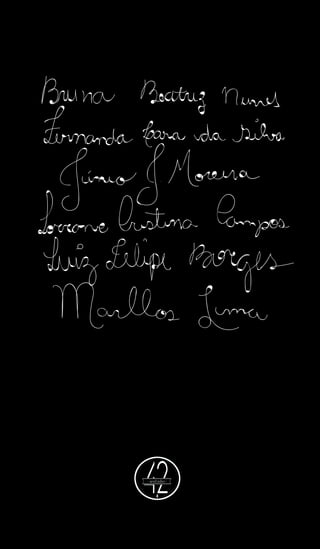 Bruna Beatriz Nunes
Fernanda Lara da Silva
Júnio J Moreira
Lorrane Cristina Campos
Luiz Felipe Borges
Marllos Lima
42